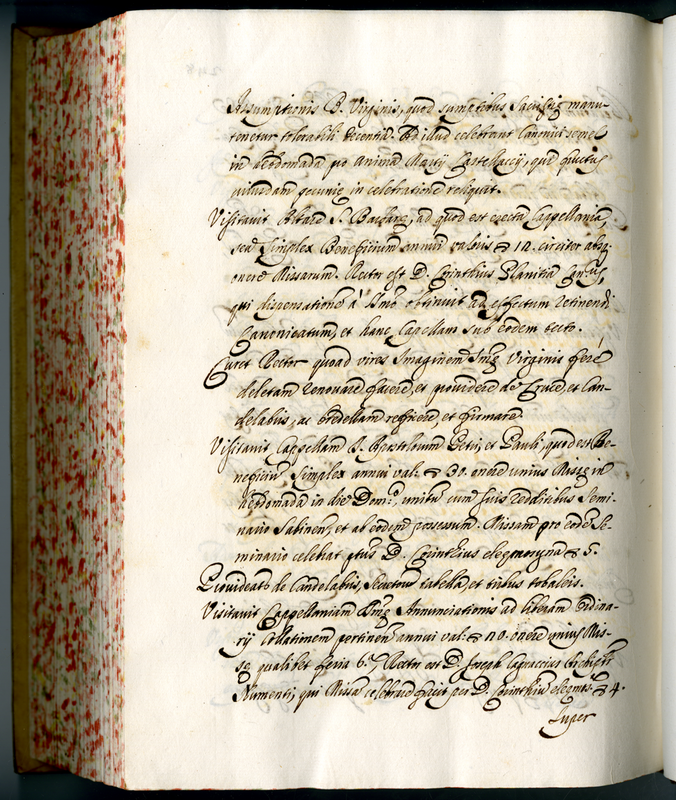 Assumptionis B. Virginis, quod sumptibus Sacristię manu-
tenetur tolerabili decentia. Ad illud celebrant Canonici semel
in hebdomada pro anima Martij, qui fructus
cuiusdam pecunię in celebratione reliquit.
Visitavit Altare S. Barbarę, ad quod est erecta Cappellania,
seu simplex Beneficium annui valoris 12. circiter absq
onere Missarum. Rector est D. Corinthius Planitia Can.cus,
qui dispensatione à obtinuit ad effectum retinendi
Canonicatum, et hanc Capellam sub eodem tecto.
Curet Rector quoad vires Imaginem Smę Virginis ferè
deletam renouare facere, et providere de Cruce, et Can-
delabris, ac bredellam reficere, et firmare.
Visitavit Cappellam S. Apostolorum Petri, et Pauli, quod est Be-
neficiu simplex annui val. 30. onere unius Missę in
hebdomada in die Dom.ca, unitu cum suis redditibus Semi-
nario Sabinen, et ab eodem possessum. Missam pro eode Se-
minario celebrat ptus D. Corinthius eleemosyna 5.
Provideat de Candelabris, Secretoru tabella, et tribus tobaleis.
Visitavit Cappellaniam Smę Annunciationis ad liberam Ordina-
rij Collationem pertinen annui val. 20. onere unius Mis-
sę qualibet feria 6.a Rector est D. Joseph Archipr
Numenti, qui Missa celebrare facit per D. Corinthiu eleemos. 4.
Super